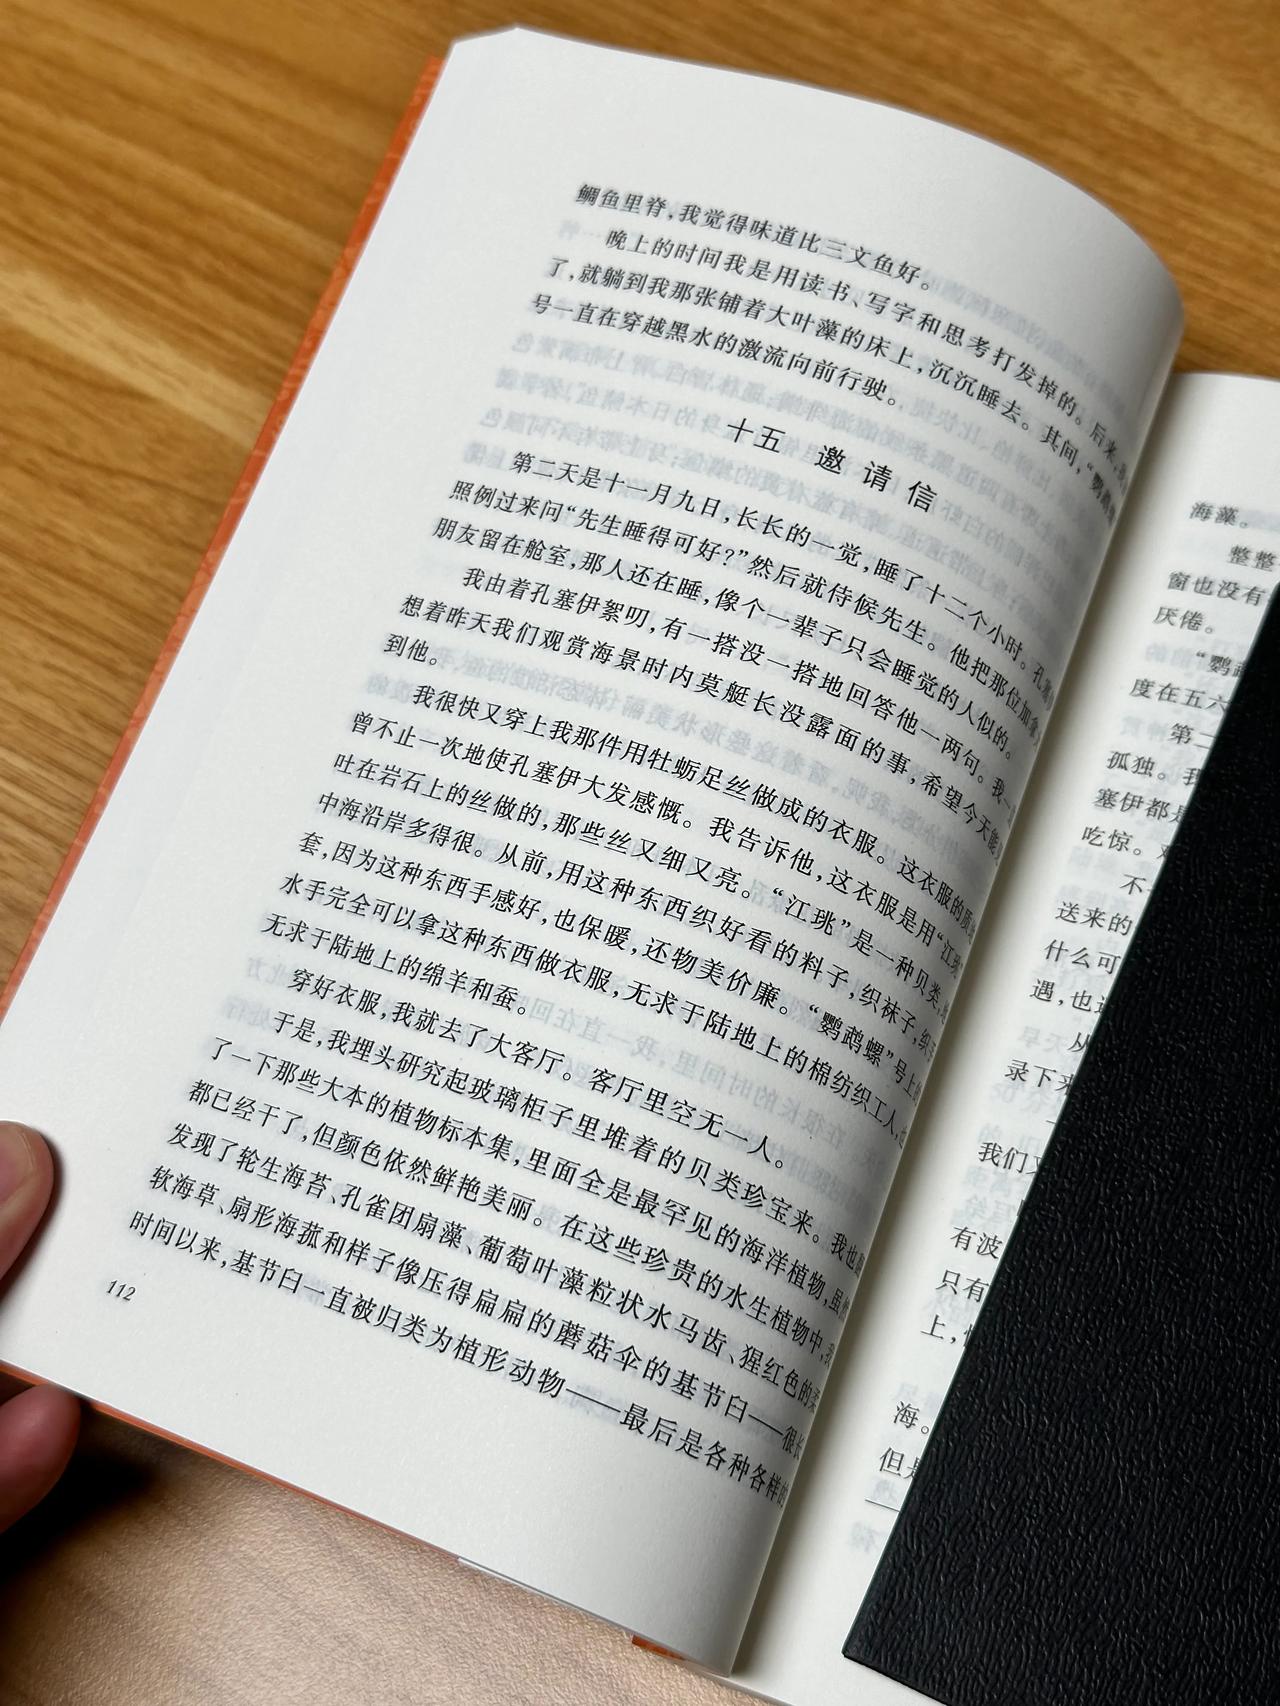 鲷鱼里脊，我觉得味道比三文鱼好。
晚上的时间我是用读书、写字和思考打发掉的。后来，我
了，就躺到我那张铺着大叶藻的床上，沉沉睡去。其间，“鹦鹉螺
号一直在穿越黑水的激流向前行驶。
十五 邀请信
第二天是十一月九日，长长的一觉，睡了十二个小时。孔塞伊
照例过来问“先生睡得可好？”然后就侍候先生。他把那位加拿大
朋友留在舱室，那人还在睡，像个一辈子只会睡觉的人似的。
我由着孔塞伊絮叨，有一搭没一搭地回答他一两句。我一
想着昨天我们观赏海景时内莫艇长没露面的事，希望今天能
到他。
我很快又穿上我那件用牡蛎足丝做成的衣服。这衣服的质
曾不止一次地使孔塞伊大发感慨。我告诉他，这衣服是用“江珧”
吐在岩石上的丝做的，那些丝又细又亮。“江珧”是一种贝类，
中海沿岸多得很。从前，用这种东西织好看的料子，织袜子，织手
套，因为这种东西手感好，也保暖，还物美价廉。“鹦鹉螺”号上的
水手完全可以拿这种东西做衣服，无求于陆地上的棉纺织工人，也
无求于陆地上的绵羊和蚕。
穿好衣服，我就去了大客厅。客厅里空无一人。
于是，我埋头研究起玻璃柜子里堆着的贝类珍宝来。我也
了一下那些大本的植物标本集，里面全是最罕见的海洋植物，虽
都已经干了，但颜色依然鲜艳美丽。在这些珍贵的水生植物中，我
发现了轮生海苔、孔雀团扇藻、葡萄叶藻粒状水马齿、猩红色的柔
软海草、扇形海菰和样子像压得扁扁的蘑菇伞的基节臼——很长
时间以来，基节臼一直被归类为植形动物——最后是各种各样的
112
海藻。
整整
窗也没有
厌倦。
“鹦鹉
度在五六
第二
孤独。我
塞伊都是
吃惊。
不
送来的
什么可
遇，也
从
录下来
我们
有波
只有
上，
海。
但是